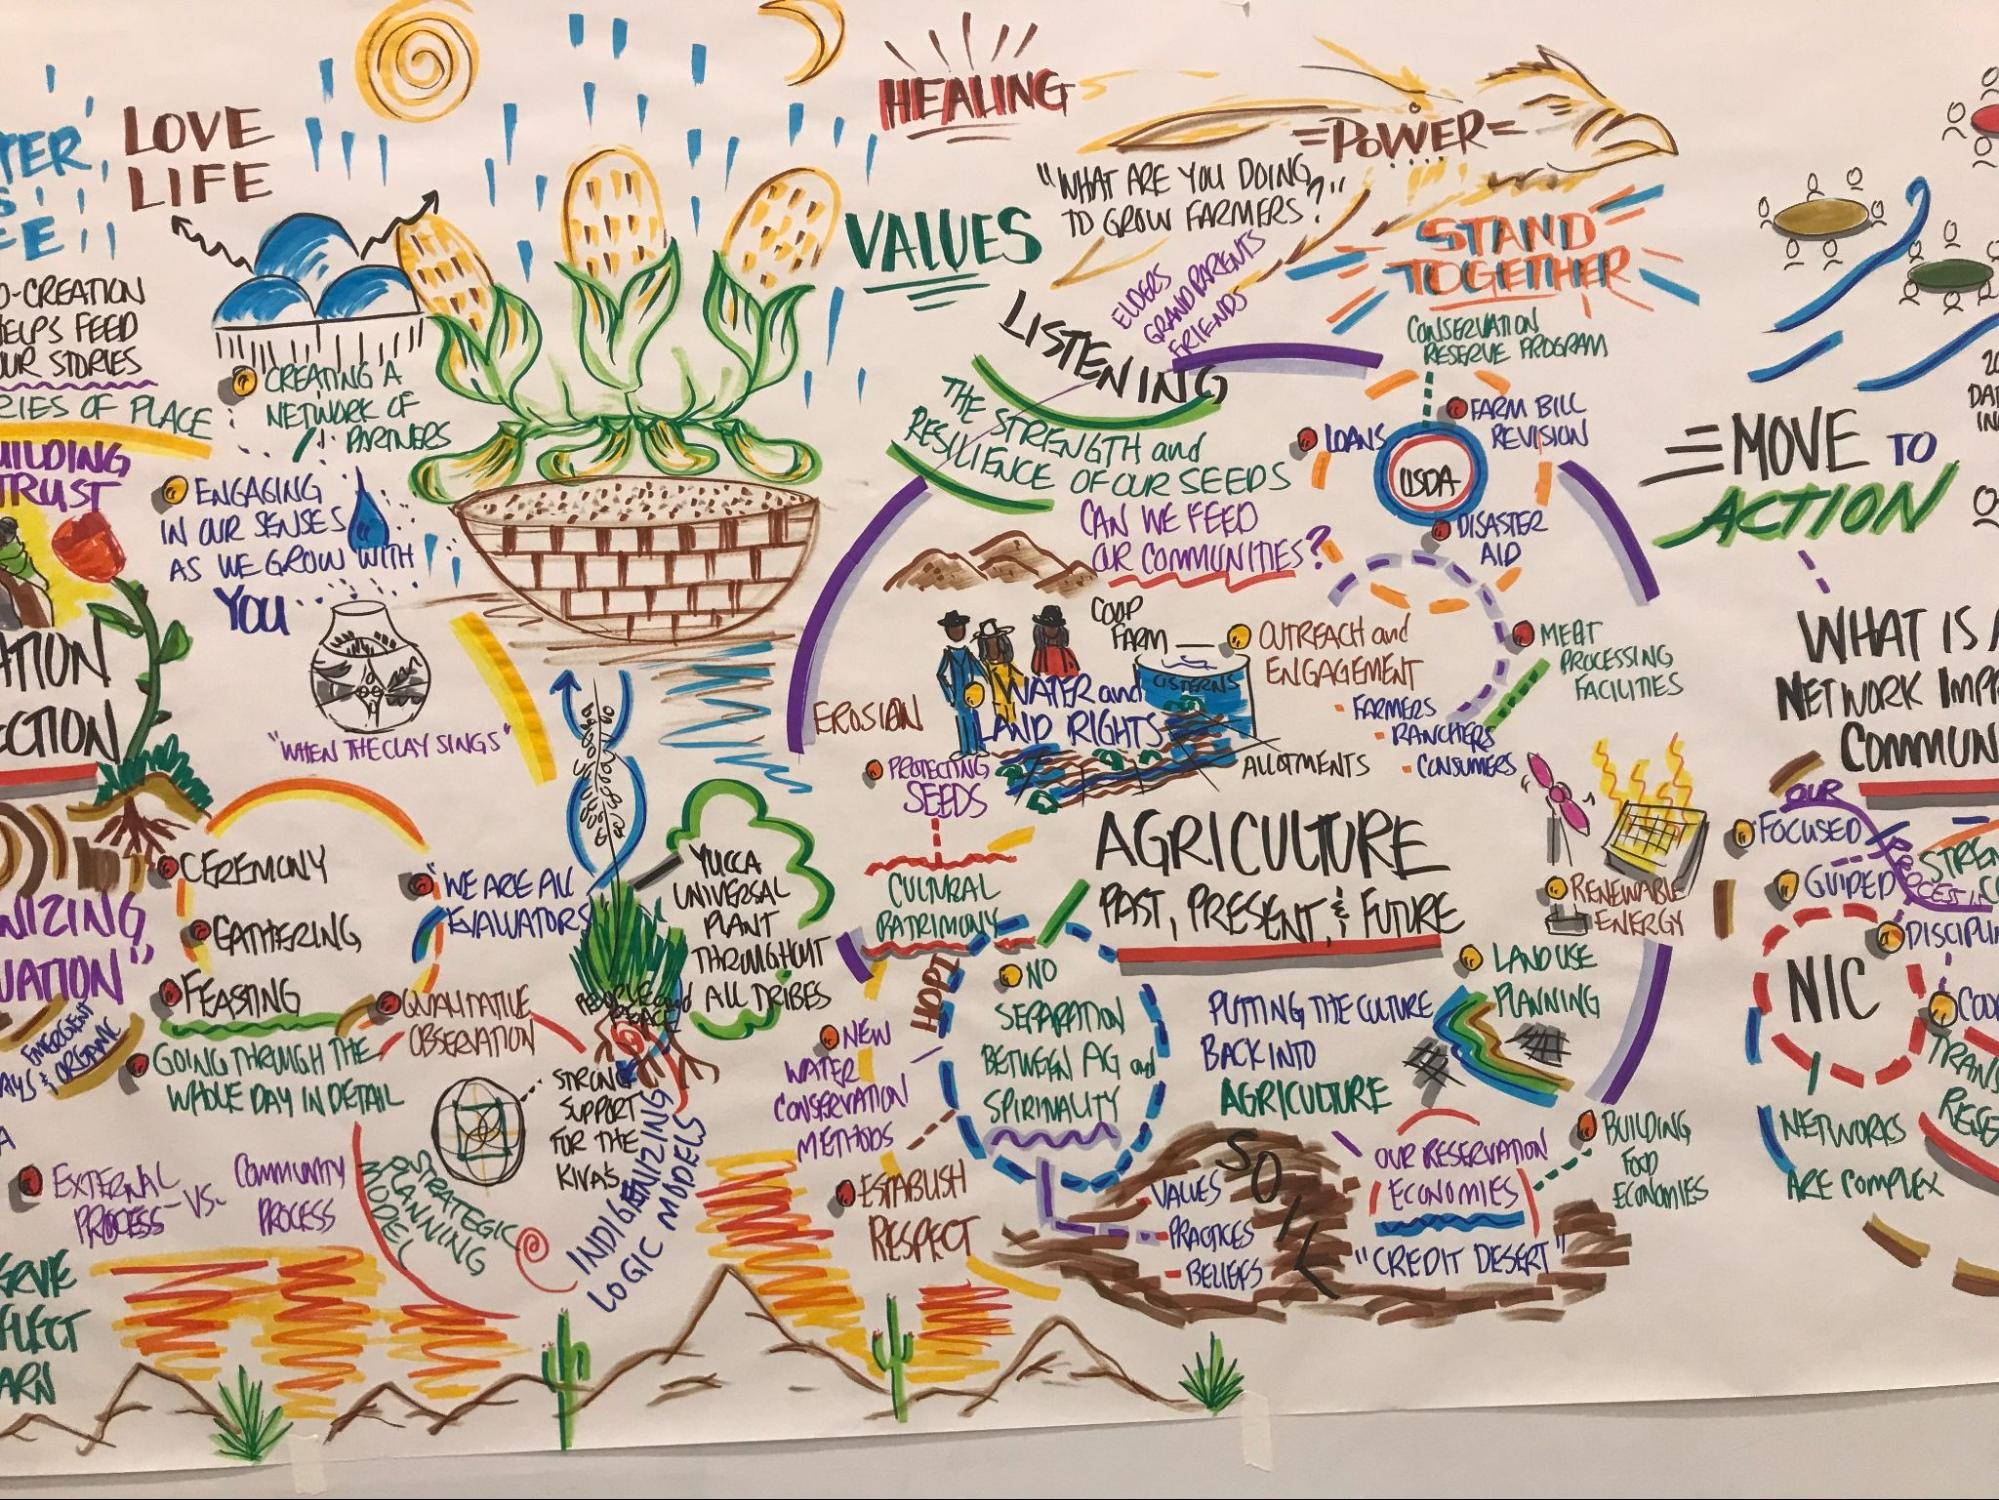 LOVE
LIFE
CREATING A
NETWORK OF
PARTNERS
ENGAGING
IN OUR SENSES
AS WE GROW WITH
YOU
"WHEN THE CLAY SINGS"
HELPS FEED
STORIES
OF PLACE
TRUST
CEREMONY
GATHERING
FEASTING
"WE ARE ALL
EVALUATORS
QUALITATIVE
OBSERVATION
GOING THROUGH THE
WHOLE DAY IN DETAIL
EMERGENT
& ORGANIC
EXTERNAL
PROCESS
-VS-
COMMUNITY
PROCESS
STRATEGIC
PLANNING
MODEL
STRONG
SUPPORT
FOR THE
KIVAS
INDIGENIZING
LOGIC MODELS
YUCCA
UNIVERSAL
PLANT
THROUGHOUT
ALL TRIBES
PEOPLE and
PLACE
HEALING
=POWER=
"WHAT ARE YOU DOING
TO GROW FARMERS?"
VALUES
ELDERS
GRANDPARENTS
FRIENDS
STAND
TOGETHER
LISTENING
THE STRENGTH and
RESILIENCE OF OUR SEEDS
CAN WE FEED
OUR COMMUNITIES?
CONSERVATION
RESERVE PROGRAM
LOANS
USDA
FARM BILL
REVISION
DISASTER
AID
COOP
FARM
CISTERNS
OUTREACH and
ENGAGEMENT
- FARMERS
- RANCHERS
- CONSUMERS
MEAT
PROCESSING
FACILITIES
EROSION
WATER and
LAND RIGHTS
ALLOTMENTS
PROTECTING
SEEDS
CULTURAL
PATRIMONY
AGRICULTURE
PAST, PRESENT, & FUTURE
RENEWABLE
ENERGY
HOPI
NO
SEPARATION
BETWEEN AG and
SPIRINALITY
PUTTING THE CULTURE
BACK INTO
AGRICULTURE
LAND USE
PLANNING
NEW
WATER
CONSERVATION
METHODS
ESTABLISH
RESPECT
SOIL
VALUES
PRACTICES
BELIEFS
OUR RESERVATION
ECONOMIES
"CREDIT DESERT"
BUILDING
FOOD
ECONOMIES
MOVE TO
ACTION
WHAT IS A
NETWORK
OUR
FOCUSED
GUIDED
NIC
NETWORKS
ARE COMPLEX